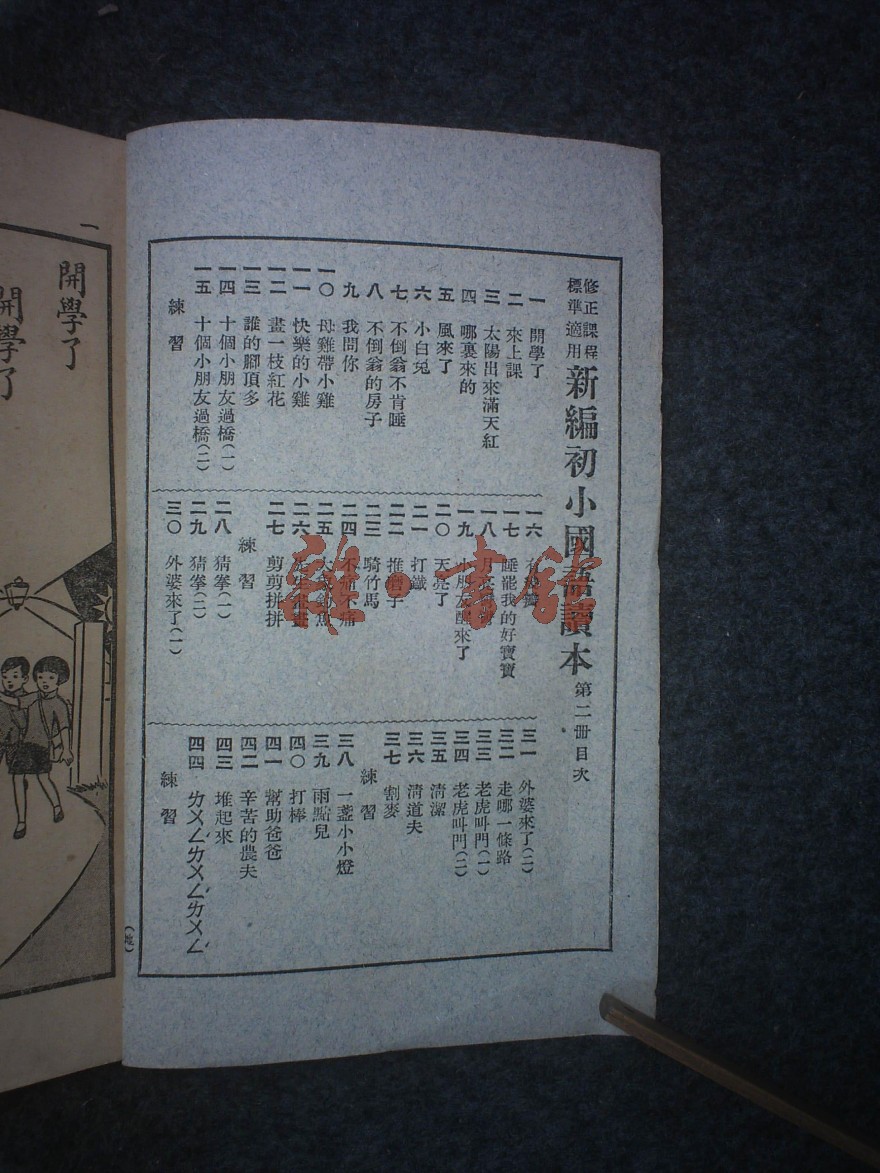 修正課程
標準適用
新編初小國語讀本
第二冊目次
一 開學了
二 來上課
三 太陽出來滿天紅
四 哪裏來的
五 風來了
六 小白兔
七 不倒翁不肯睡
八 不倒翁的房子
九 我問你
一〇 母雞帶小雞
一一 快樂的小雞
一二 畫一枝紅花
一三 誰的腳頂多
一四 十個小朋友過橋(一)
一五 十個小朋友過橋(二)
練習
一六
一七 睡罷我的好寶寶
一八 月亮
一九 小朋友醒來了
二〇 天亮了
二一 打鐵
二二 推磨子
二三 騎竹馬
二四 不痛不痛
二五 大家釣魚
二六 先生
二七 剪剪拼拼
練習
二八 猜拳(一)
二九 猜拳(二)
三〇 外婆來了(一)
三一 外婆來了(二)
三二 走哪一條路
三三 老虎叫門(一)
三四 老虎叫門(二)
三五 清潔
三六 清道夫
三七 割麥
練習
三八 一盞小小燈
三九 雨點兒
四〇 打棒
四一 幫助爸爸
四二 辛苦的農夫
四三 堆起來
四四 ㄉㄨㄥˊㄉㄨㄥˊㄉㄨㄥˊ
練習
雜·書館
一
開學了
開學了